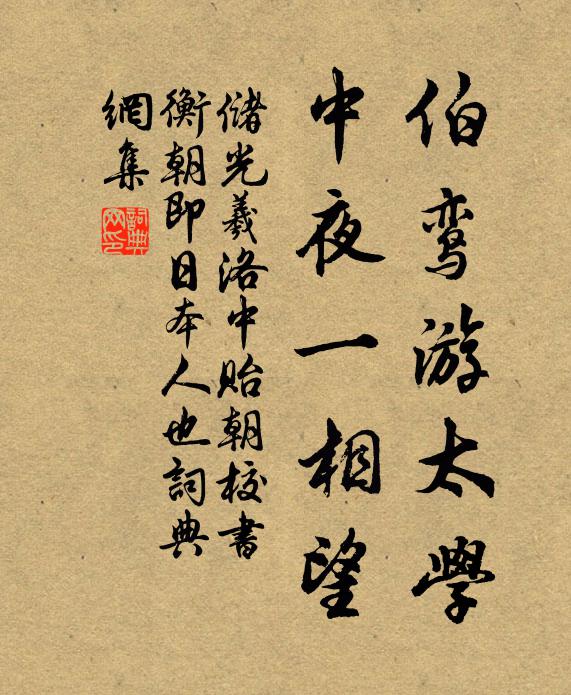 伯鸾游太學
中夜一相望
儲光羲洛中貽朝校書
衡朝即日本人也詞典
網集
詞典
网印